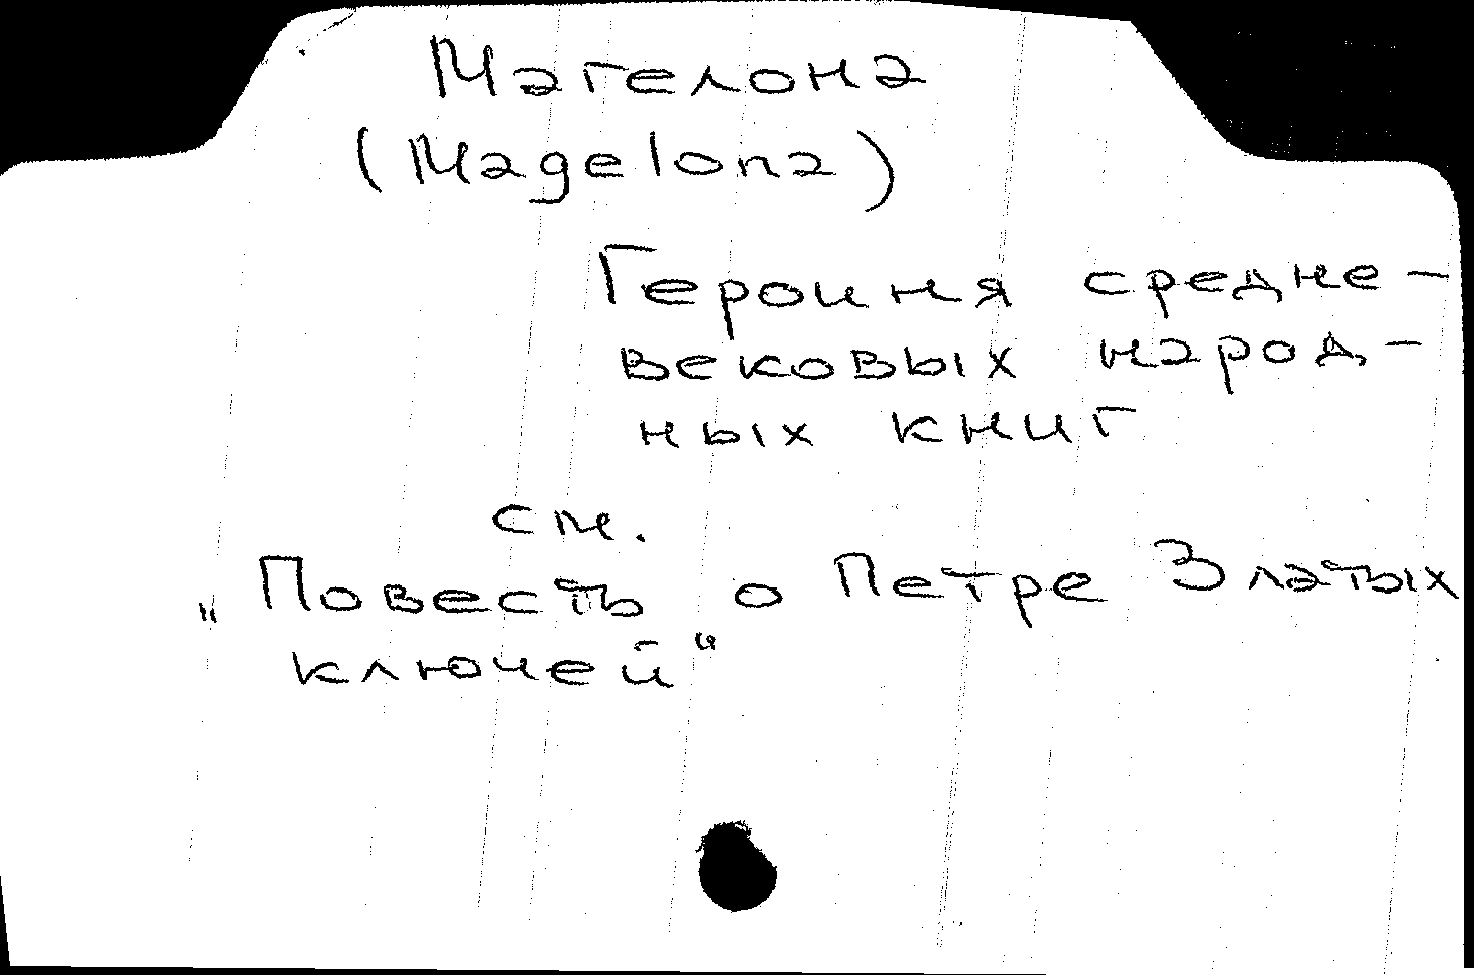 Магелона
(Magelona)
Героиня средне-
вековых народ-
ных книг
см.
„Повесть о Петре Златых
ключей“